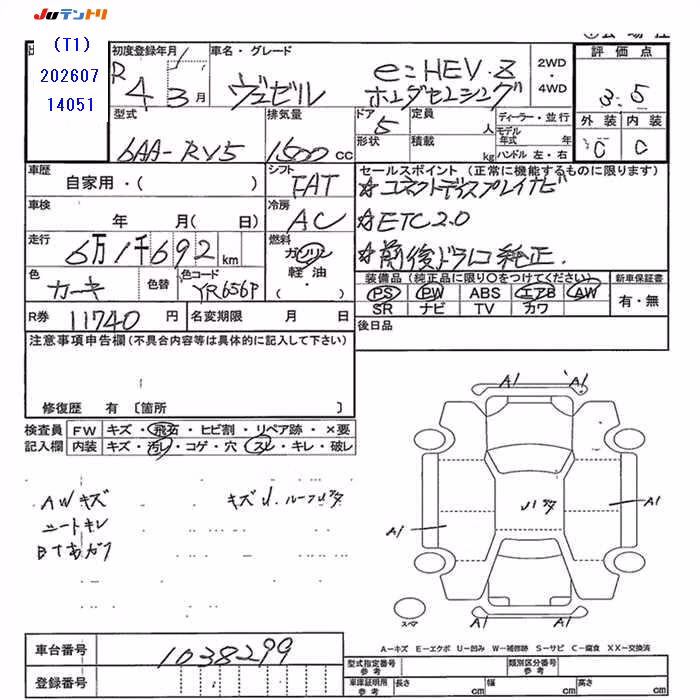 Juテントリ
(T1)
202607
14051
初度登録年月
R4 3月
車名・グレード
ヴェゼル
e:HEV・Z
ホンダセンシング
2WD
・
4WD
評価点
3.5
外装 内装
C C
型式
6AA-RV5
排気量
1500cc
ドア
5
形状
定員
人
積載
kg
ディーラー・並行
モデル
年式 年
ハンドル 左・右
車歴
自家用・( )
シフト
FAT
車検
年 月( 日)
冷房
AC
走行
6万1千692km
燃料
ガソリン
軽油
・( )
色
カーキ
色替
色コード
YR656P
セールスポイント (正常に機能するものに限ります)
☆コネクトディスプレイナビ
☆ETC2.0
☆前後ドラレコ純正.
装備品(純正品に限り○をつけてください)
新車保証書
PS PW ABS エアB AW
SR ナビ TV カワ
有・無
R券 11740円
名変期限 月 日
後日品
注意事項申告欄(不具合内容等は具体的に記入して下さい)
修復歴 有〔箇所 〕
検査員
記入欄
FW キズ・飛石・ヒビ割・リペア跡・×要
内装 キズ・汚レ・コゲ・穴・スレ・キレ・破レ
AWキズ
シートキレ
キズU.ルーフUダ
A1 A1
A1
A1
A1 A1
スペア
A-キズ E-エクボ U-凹み W-補修跡 S-サビ C-腐食 XX-交換済
車台番号
1038299
登録番号
型式指定番号
参考
類別区分番号
参考
車庫証明用
参考
長さ cm
幅 cm
高さ cm